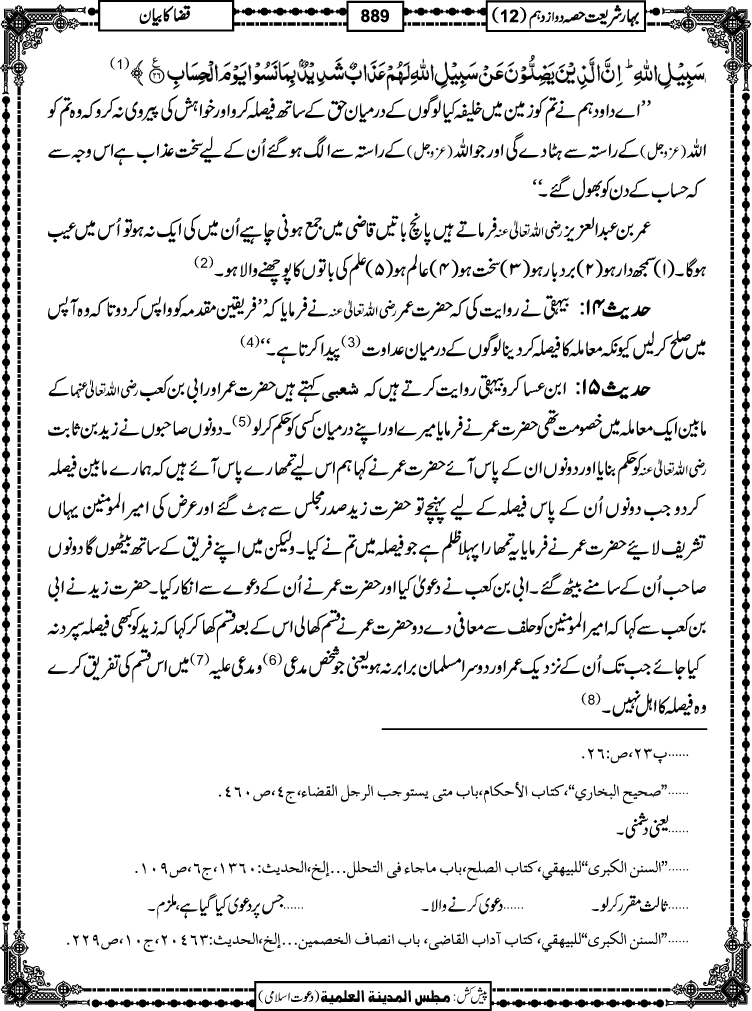 بہارِ شریعت حصہ دوازدہم (12)
889
قضا کا بیان
سَبِیْلِ اللّٰهِؕ-اِنَّ الَّذِیْنَ یَضِلُّوْنَ عَنْ سَبِیْلِ اللّٰهِ لَهُمْ عَذَابٌ شَدِیْدٌۢ بِمَا نَسُوْا یَوْمَ الْحِسَابِ۠(۲۶)﴾ (1)
’’اے داود ہم نے تم کو زمین میں خلیفہ کیا لوگوں کے درمیان حق کے ساتھ فیصلہ کرو اور خواہش کی پیروی نہ کرو کہ وہ تم کو
اللہ (عزوجل) کے راستہ سے ہٹا دے گی اور جو اللہ (عزوجل) کے راستہ سے الگ ہو گئے اُن کے لیے سخت عذاب ہے اس وجہ سے
کہ حساب کے دن کو بھول گئے۔‘‘
عمر بن عبدالعزیز رضی اللہ تعالیٰ عنہ فرماتے ہیں پانچ باتیں قاضی میں جمع ہونی چاہیے اُن میں کی ایک نہ ہو تو اُس میں عیب
ہوگا۔ (۱) سمجھ دار ہو (۲) بردبار ہو (۳) سخت ہو (۴) عالم ہو (۵) علم کی باتوں کا پوچھنے والا ہو۔ (2)
حدیث ۱۴: بیہقی نے روایت کی کہ حضرت عمر رضی اللہ تعالیٰ عنہ نے فرمایا کہ ’’فریقین مقدمہ کو واپس کر دو تا کہ وہ آپس
میں صلح کر لیں کیونکہ معاملہ کا فیصلہ کر دینا لوگوں کے درمیان عداوت (3) پیدا کرتا ہے۔‘‘ (4)
حدیث ۱۵: ابن عساکر و بیہقی روایت کرتے ہیں کہ شعبی کہتے ہیں حضرت عمر اور ابی بن کعب رضی اللہ تعالیٰ عنہما کے
مابین ایک معاملہ میں خصومت تھی حضرت عمر نے فرمایا میرے اور اپنے درمیان کسی کو حکم کر لو (5)۔ دونوں صاحبوں نے زید بن ثابت
رضی اللہ تعالیٰ عنہ کو حکم بنایا اور دونوں ان کے پاس آئے حضرت عمر نے کہا ہم اس لیے تمھارے پاس آئے ہیں کہ ہمارے مابین فیصلہ
کر دو جب دونوں اُن کے پاس فیصلہ کے لیے پہنچے تو حضرت زید صدر مجلس سے ہٹ گئے اور عرض کی امیر المومنین یہاں
تشریف لایئے حضرت عمر نے فرمایا یہ تمھارا پہلا ظلم ہے جو فیصلہ میں تم نے کیا۔ ولیکن میں اپنے فریق کے ساتھ بیٹھوں گا دونوں
صاحب اُن کے سامنے بیٹھ گئے۔ ابی بن کعب نے دعویٰ کیا اور حضرت عمر نے اُن کے دعوے سے انکار کیا۔ حضرت زید نے ابی
بن کعب سے کہا کہ امیر المومنین کو حلف سے معافی دے دو حضرت عمر نے قسم کھالی اس کے بعد قسم کھا کر کہا کہ زید کو کبھی فیصلہ سپرد نہ
کیا جائے جب تک اُن کے نزدیک عمر اور دوسرا مسلمان برابر نہ ہو یعنی جو شخص مدعی (6) و مدعیٰ علیہ (7) میں اس قسم کی تفریق کرے
وہ فیصلہ کا اہل نہیں۔ (8)
......پ۲۳،ص:۲۶.
......”صحيح البخاري“، كتاب الأحكام،باب متى يستوجب الرجل القضاء،ج٤،ص٤٦٠.
......یعنی دشمنی۔
......”السنن الكبرى“للبيهقي،كتاب الصلح،باب ماجاء فى التحلل...إلخ،الحديث:١٣٦٠،ج٦،ص١٠٩.
......ثالث مقرر کر لو۔ ......دعوی کرنے والا۔ ......جس پر دعوی کیا گیا ہے، ملزم۔
......”السنن الكبرى“للبيهقي، كتاب آداب القاضى، باب انصاف الخصمين...إلخ،الحديث:٢٠٤٦٣،ج١٠،ص٢٢٩.
پیش کش: مجلس المدینۃ العلمیۃ (دعوت اسلامی)